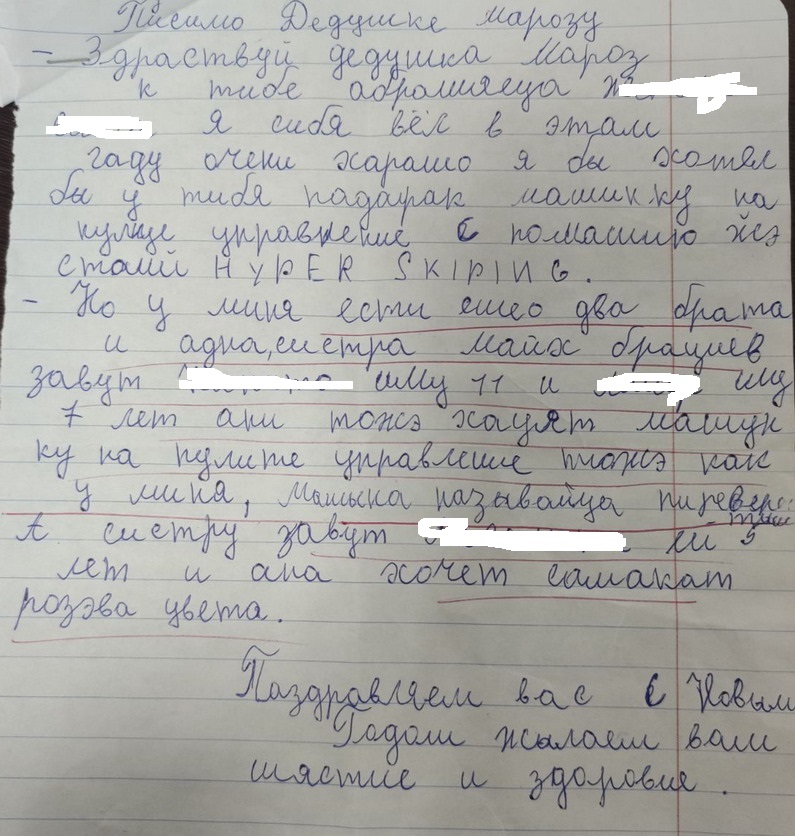 Письмо Дедушке марозу
- Здраствуй дедушка Мароз
к тибе абрашяеца
Я сибя вёл в этам
гаду очени харашо я бы хотял
бы у тибя падарак машинку на
пулце управление с помашию йсэ
сталй HYPER SKIPING.
- Но у миня ести ешео два брата
и адна, систра майх брациев
завут иму 11 и иму
7 лет ани тожэ хацят машун
ку на пулите управление тожэ как
у миня, Машына называйца пиревёро
тыш
А систру завут ей 5
лет и ана хочет самакат
розэва цвета.
Паздравляем вас с Новым
Годам жылаем вам
шястие и здоровие.